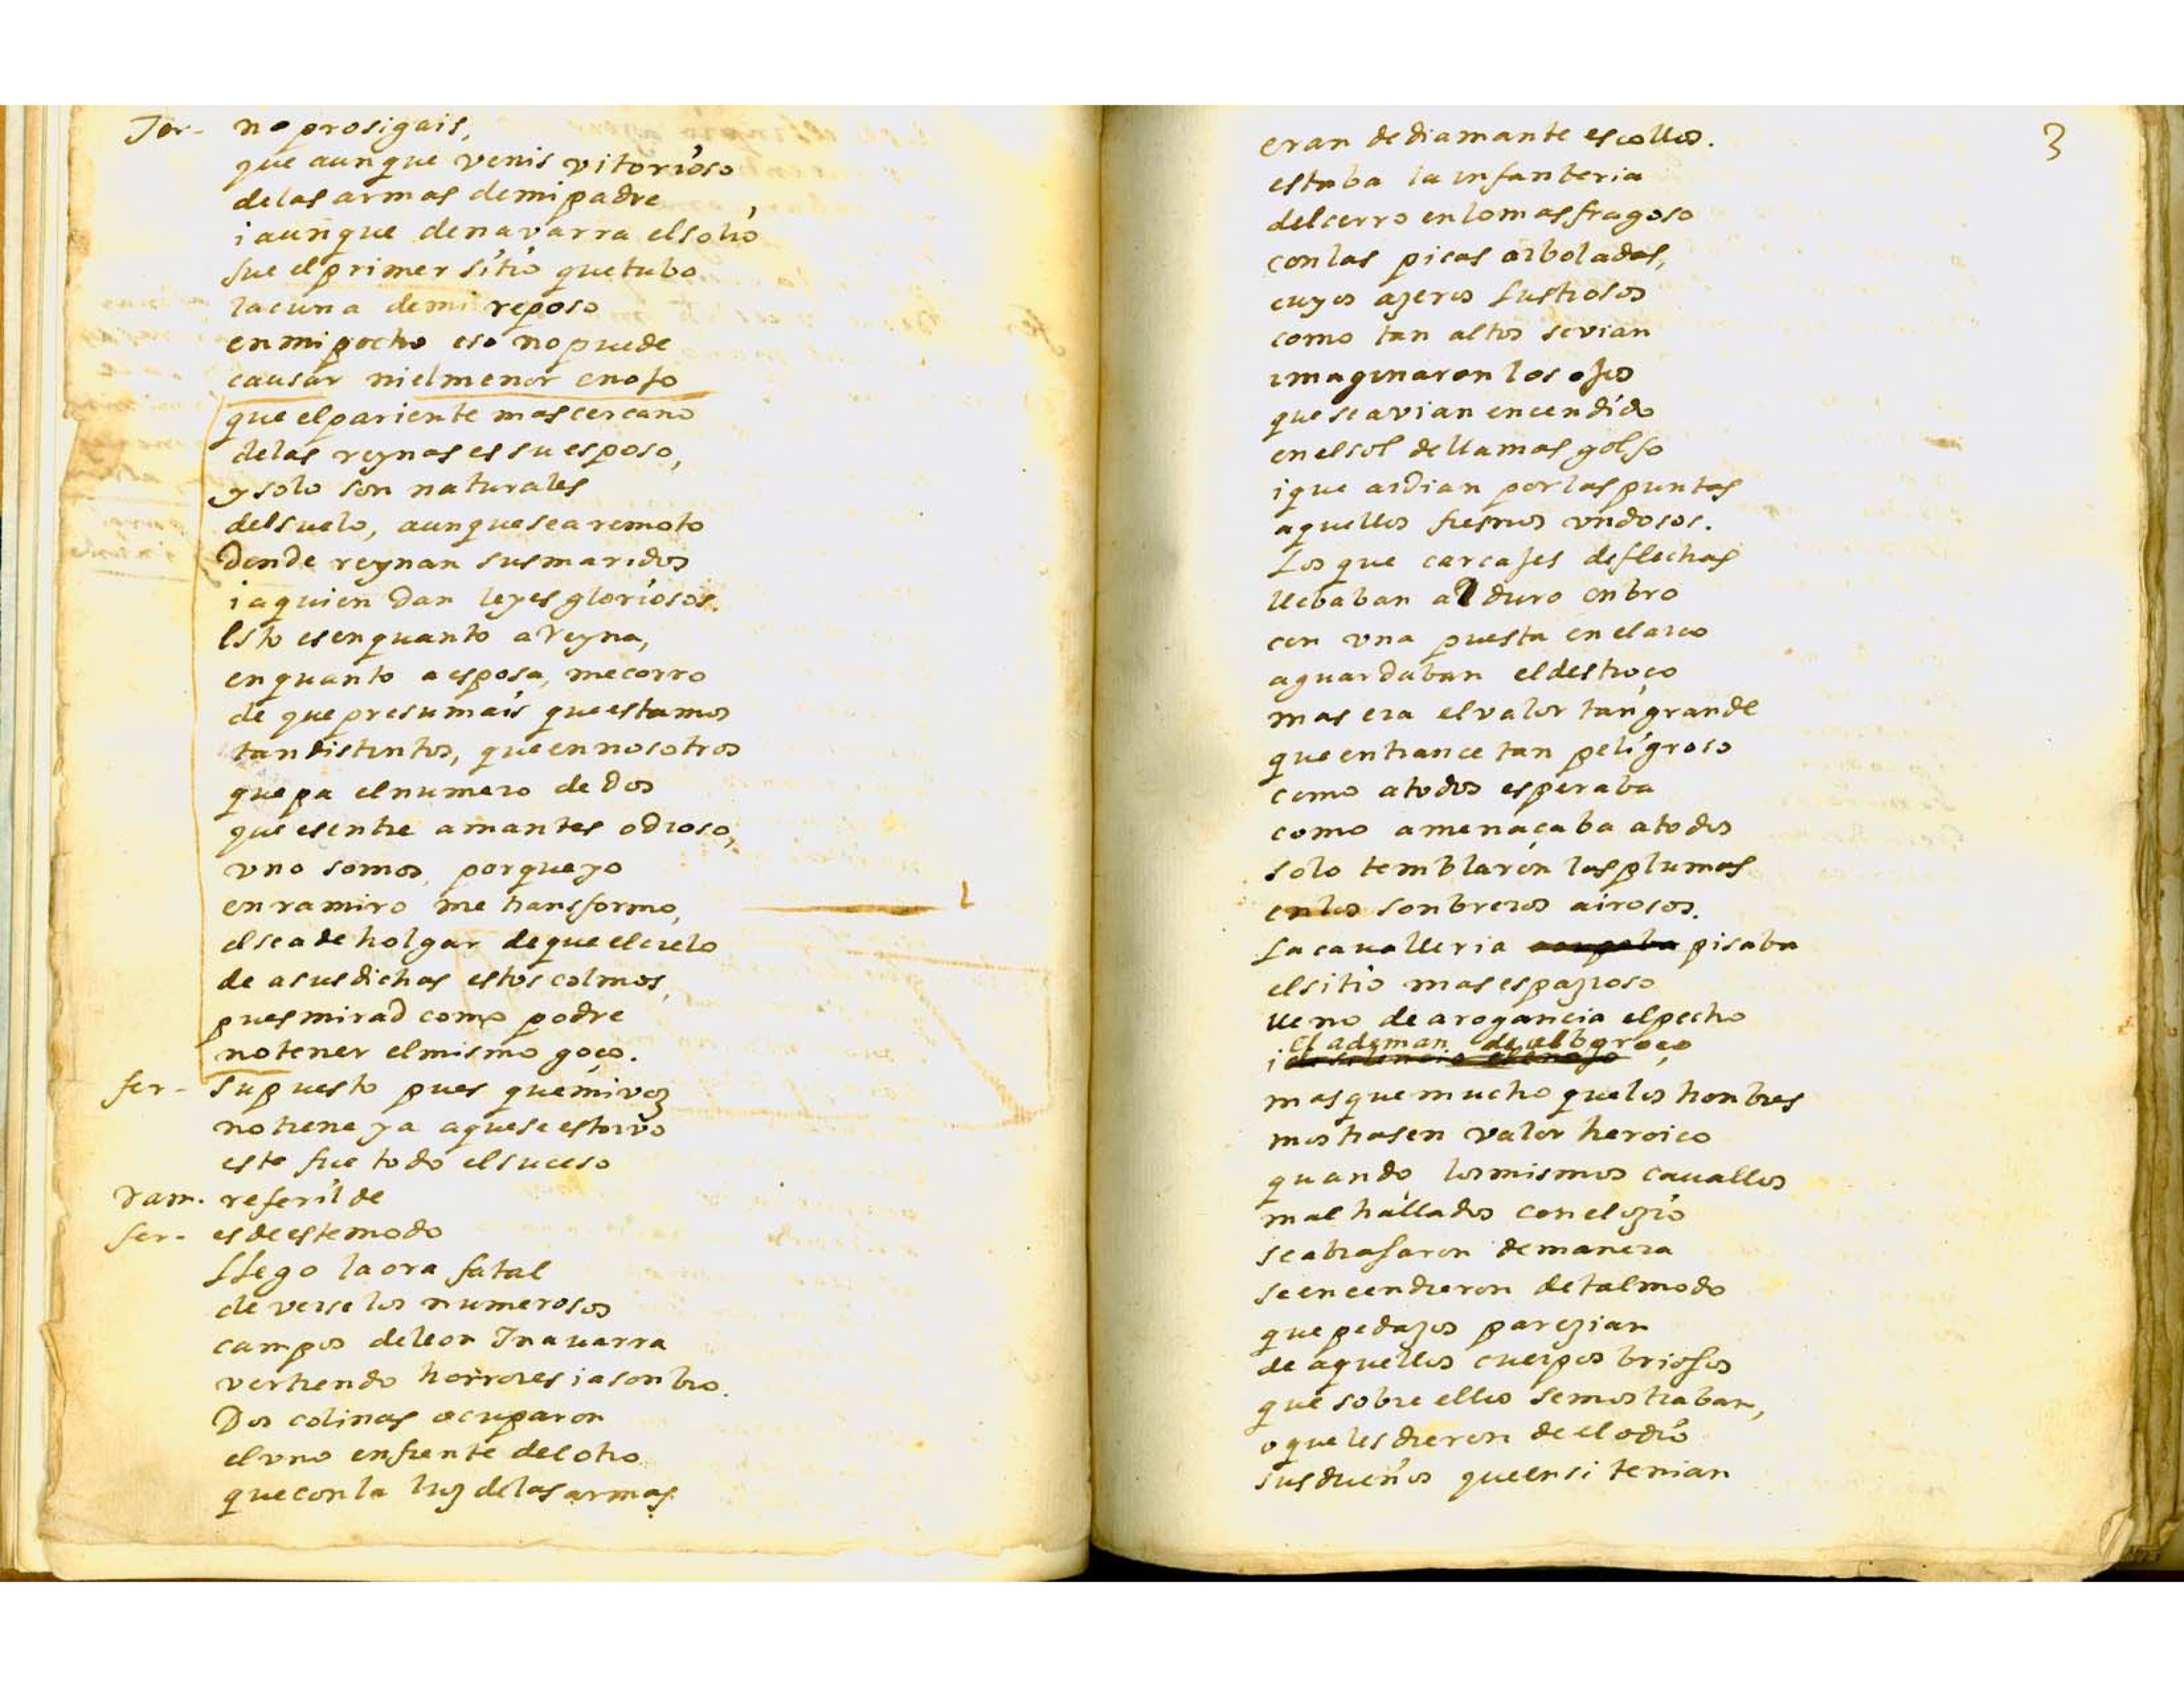 Ter- no prosigais,
que aunque venis vitorioso
delas armas demipadre
i aunque denavarra elsolio
fue elprimer sitio quetubo
lacuna demi reposo
enmipecho eso nopuede
causar nielmenor enojo
que elpariente mascercano
delas reynas es su esposo,
y solo son naturales
delsuelo, aunquesea remoto
donde reynan susmaridos
i aquien dan leyes gloriosos.
Esto esenquanto a Reyna,
enquanto a esposa, mecorro
de que presumais queestamos
tandistintos, queennosotros
quepa elnumero de dos
que esentre amantes odioso,
vno somos, porqueyo
enramiro me transformo,
elseadeholgar dequeelcielo
de asusdichas estos colmos,
puesmirad como podre
notener elmismo goço.
fer- Supuesto pues quemivoz
notiene ya aquese estorvo
este fue todo elsuceso
ram. referilde
fer- esdeestemodo
Llego laora fatal
de verse los numerosos
campos deleon Inauarra
vertiendo horrores iasonbro.
Dos colinas ocuparon
elvno enfrente delotro
queconla luz delasarmas
3
eran dediamante escollos.
estaba la infanteria
delcerro enlomasfragoso
conlas picas arboladas,
cuyos azeros lustrosos
como tan altos sevian
imaginaron los ojos
queseavian encendido
enelsol dellamas golfo
ique ardian porlaspuntas
aquellos fresnos vndosos.
Los que carcajes deflechas
llebaban al duro onbro
con vna puesta enelarco
aguardaban eldestroço
mas era elvalor tangrande
queentrance tan peligroso
como atodos esperaba
como amenaçaba atodos
solo temblaron lasplumas
enlos sonbreros airosos.
Lacaualleria pisaba
elsitio masespazioso
lleno dearogancia elpecho
el ademan de alboroço
i ,
masquemucho quelos honbres
mostrasen valor heroico
quando losmismos cauallos
mal hallados conelozio
seabrasaron demanera
seencendieron detalmodo
quepedazos parezian
de aquellos cuerpos briosos
que sobre ellos semostraban,
oqueles dieron de elodio
susdueños queensi tenian